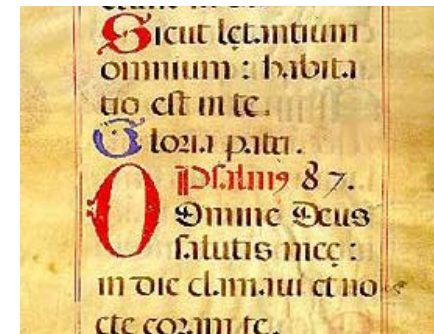 Sicut lętantium
omnium : habita
tio est in te.
Gloria patri.
Psalmꝰ 87.
Domine Deus
salutis meę :
in die clamaui et no
cte coram te.